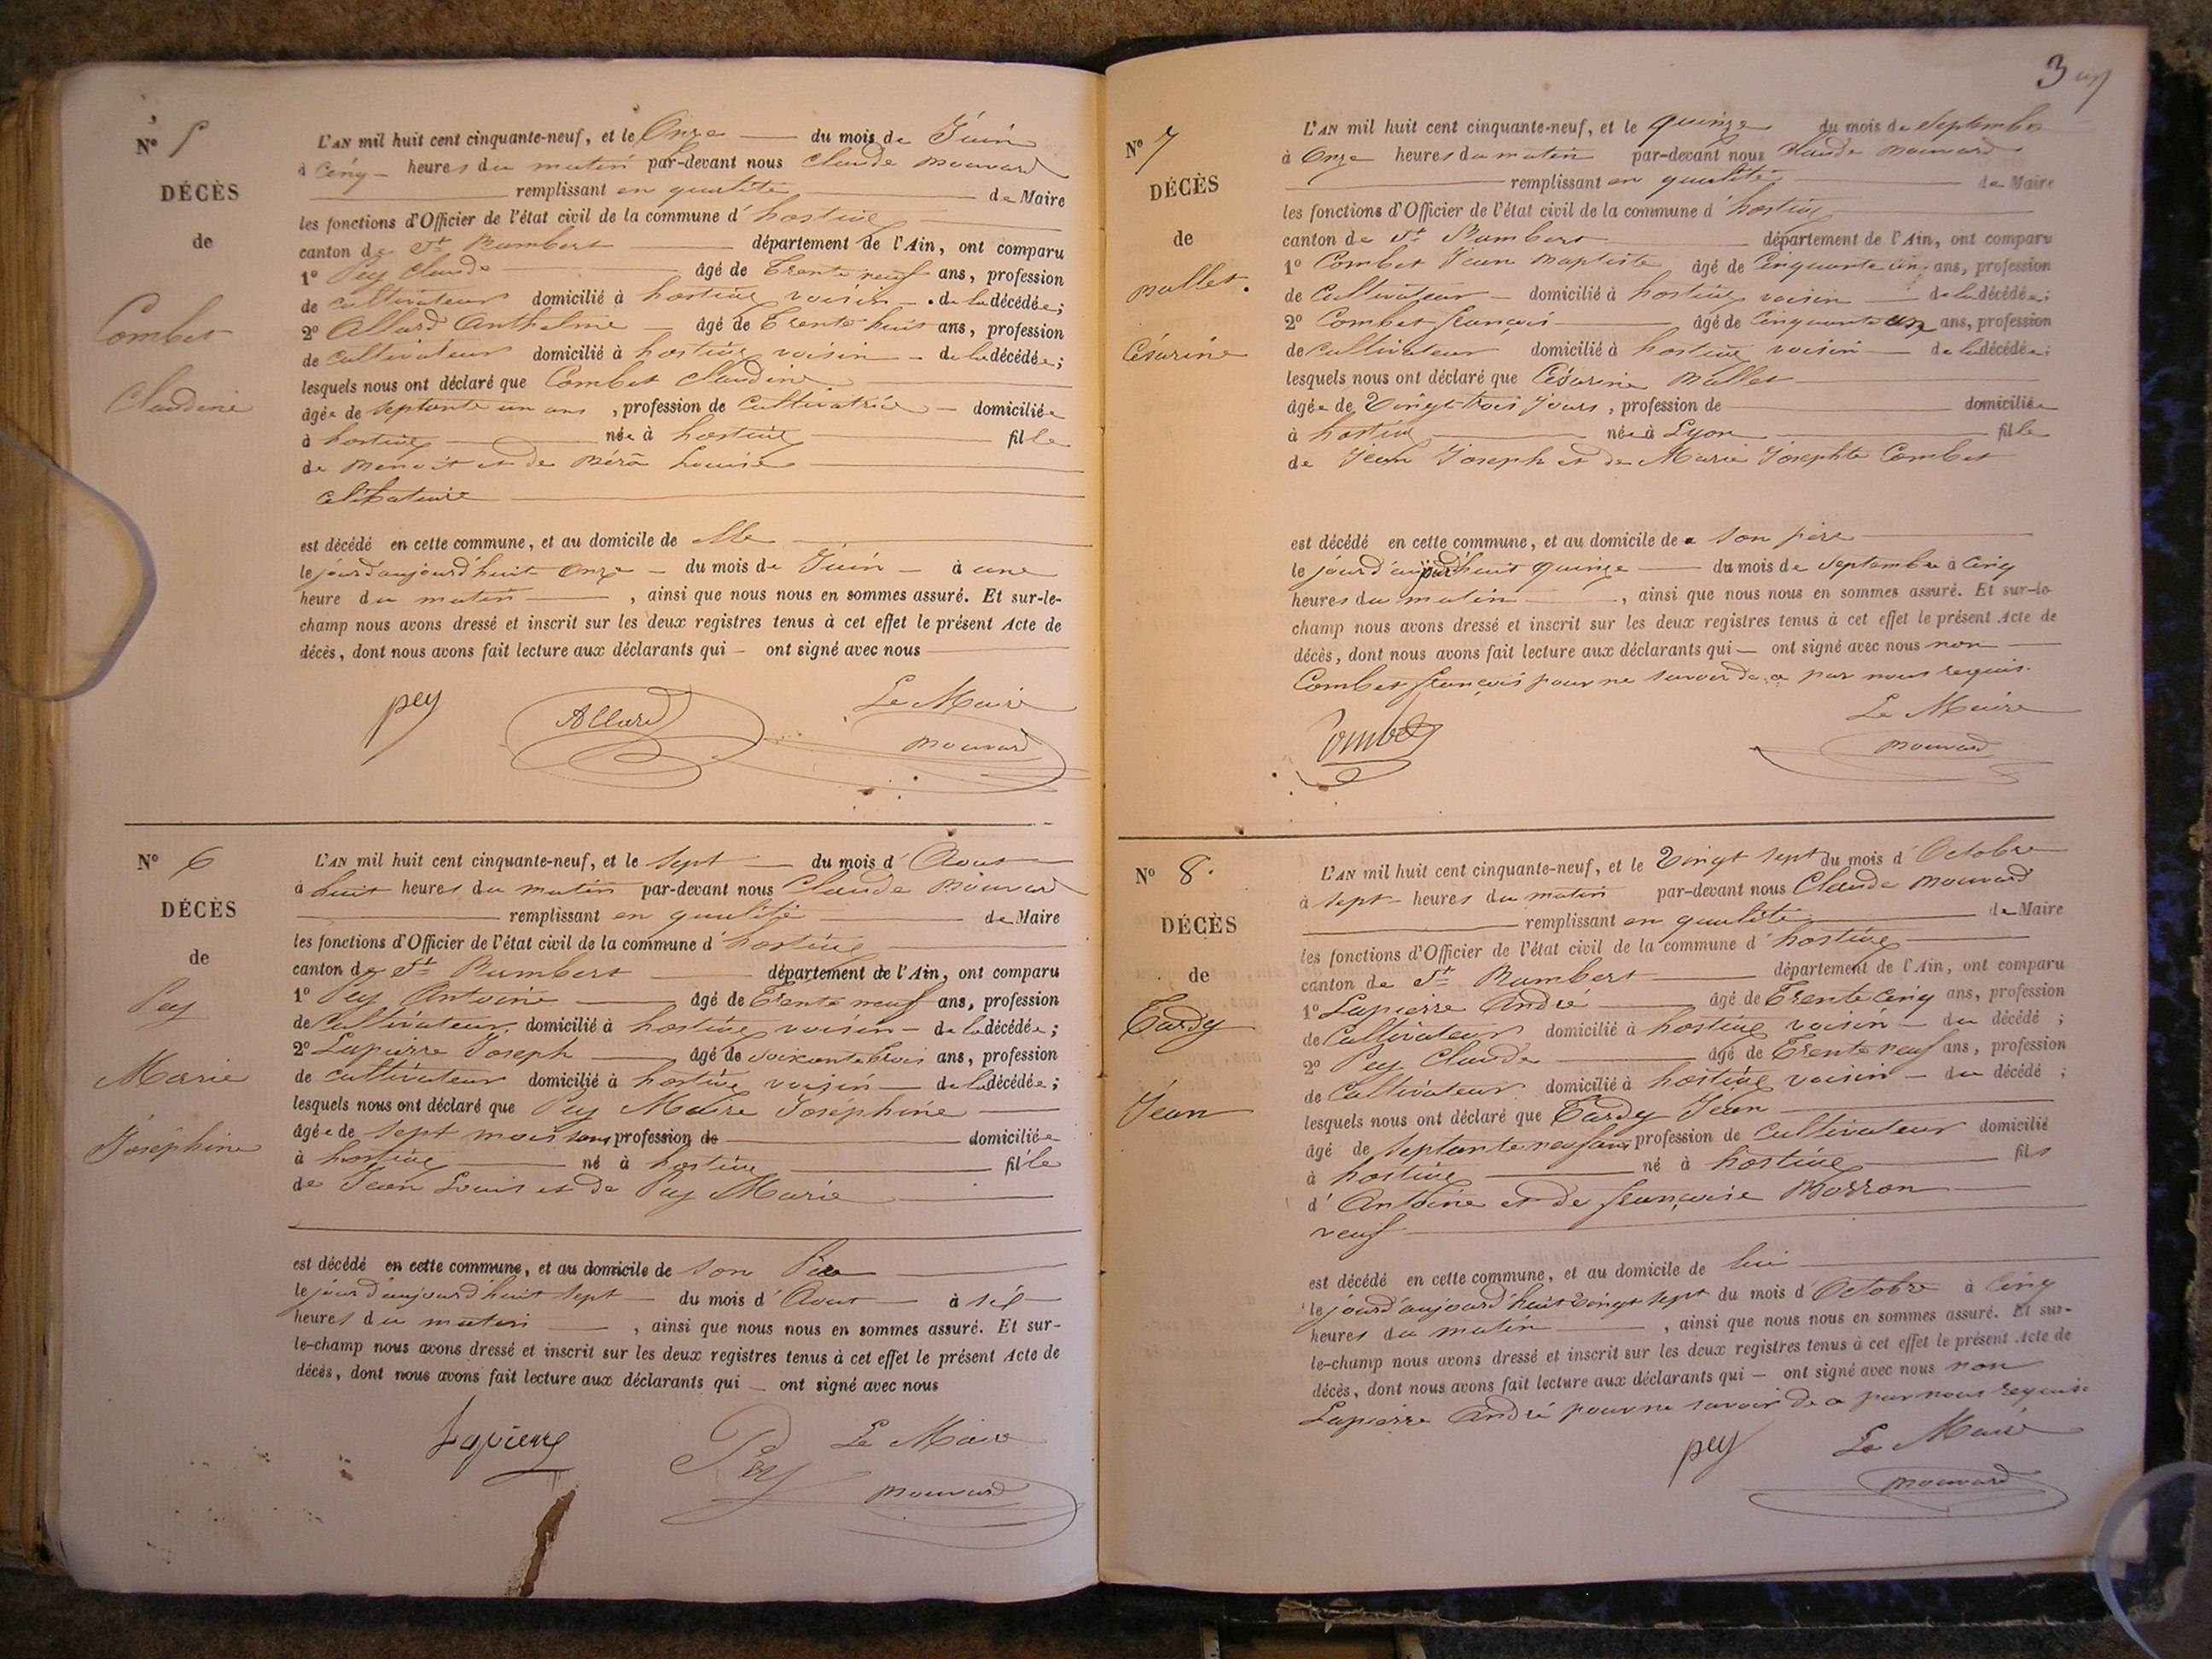 Nº 5
DÉCÈS
de
Combet
Claudine
L'AN mil huit cent cinquante-neuf, et le Onze du mois de Juin
à Cinq heures du matin par-devant nous Claude Mouvard
remplissant en qualité de Maire
les fonctions d'Officier de l'état civil de la commune d'hostiaz
canton de St Rambert département de l'Ain, ont comparu
1º Pey Claude âgé de Trente neuf ans, profession
de cultivateur domicilié à hostiaz voisin de la décédée;
2º Allard Anthelme âgé de Trente huit ans, profession
de cultivateur domicilié à hostiaz voisin de la décédée;
lesquels nous ont déclaré que Combet Claudine
âgée de septante un ans, profession de Cultivatrice domiciliée
à hostiaz née à hostiaz fille
de Benoit et de Louise
celibataire
est décédé en cette commune, et au domicile de elle
le jourd'aujourd'huit Onze du mois de Juin à une
heure du matin, ainsi que nous nous en sommes assuré. Et sur-le-
champ nous avons dressé et inscrit sur les deux registres tenus à cet effet le présent Acte de
décès, dont nous avons fait lecture aux déclarants qui ont signé avec nous
pey Allard Le Maire
Mouvard
Nº 6
DÉCÈS
de
Pey
Marie
Joséphine
L'AN mil huit cent cinquante-neuf, et le sept du mois d'Aout
à huit heures du matin par-devant nous Claude Mouvard
remplissant en qualité de Maire
les fonctions d'Officier de l'état civil de la commune d'hostiaz
canton de St Rambert département de l'Ain, ont comparu
1º Pey Antoine âgé de Trente neuf ans, profession
de Cultivateur domicilié à hostiaz voisin de la décédée;
2º Lapierre Joseph âgé de soixante trois ans, profession
de cultivateur domicilié à hostiaz voisin de la décédée;
lesquels nous ont déclaré que Pey Marie Joséphine
âgée de sept mois sans profession de domiciliée
à hostiaz né à hostiaz fille
de Jean Louis et de Pey Marie
est décédé en cette commune, et au domicile de son Père
le jour d'aujourd'huit sept du mois d'Aout à six
heures du matin, ainsi que nous nous en sommes assuré. Et sur-
le-champ nous avons dressé et inscrit sur les deux registres tenus à cet effet le présent Acte de
décès, dont nous avons fait lecture aux déclarants qui ont signé avec nous
Lapierre Pey Le Maire
Mouvard
3
Nº 7
DÉCÈS
de
Mallet.
Césarine
L'AN mil huit cent cinquante-neuf, et le quinze du mois de Septembre
à Onze heures du matin par-devant nous Claude Mouvard
remplissant en qualité de Maire
les fonctions d'Officier de l'état civil de la commune d'hostiaz
canton de St Rambert département de l'Ain, ont comparu
1º Combet Jean Baptiste âgé de Cinquante cinq ans, profession
de Cultivateur domicilié à hostiaz voisin de la décédée;
2º Combet françois âgé de Cinquante ans, profession
de cultivateur domicilié à hostiaz voisin de la décédée;
lesquels nous ont déclaré que Césarine Mallet
âgée de Vingt-trois jours, profession de domiciliée
à hostiaz née à Lyon fille
de Jean Joseph et de Marie Josephte Combet
est décédé en cette commune, et au domicile de son père
le jour d'aujourd'huit quinze du mois de Septembre à Cinq
heures du matin, ainsi que nous nous en sommes assuré. Et sur-le-
champ nous avons dressé et inscrit sur les deux registres tenus à cet effet le présent Acte de
décès, dont nous avons fait lecture aux déclarants qui ont signé avec nous non
Combet françois pour ne savoir de ce par nous requis.
Combet Le Maire
Mouvard
Nº 8.
DÉCÈS
de
Tardy
Jean
L'AN mil huit cent cinquante-neuf, et le Vingt sept du mois d'Octobre
à sept heures du matin par-devant nous Claude Mouvard
remplissant en qualité de Maire
les fonctions d'Officier de l'état civil de la commune d'hostiaz
canton de St Rambert département de l'Ain, ont comparu
1º Lapierre André âgé de Trente Cinq ans, profession
de Cultivateur domicilié à hostiaz voisin du décédé;
2º Pey Claude âgé de Trente neuf ans, profession
de Cultivateur domicilié à hostiaz voisin du décédé;
lesquels nous ont déclaré que Tardy Jean
âgé de septante neuf ans profession de Cultivateur domicilié
à hostiaz né à hostiaz fils
d'Antoine et de françoise
veuf
est décédé en cette commune, et au domicile de lui
le jourd'aujourd'huit Vingt sept du mois d'Octobre à Cinq
heures du matin, ainsi que nous nous en sommes assuré. Et sur-
le-champ nous avons dressé et inscrit sur les deux registres tenus à cet effet le présent Acte de
décès, dont nous avons fait lecture aux déclarants qui ont signé avec nous non
Lapierre André pour ne savoir de ce par nous requis
pey Le Maire
Mouvard